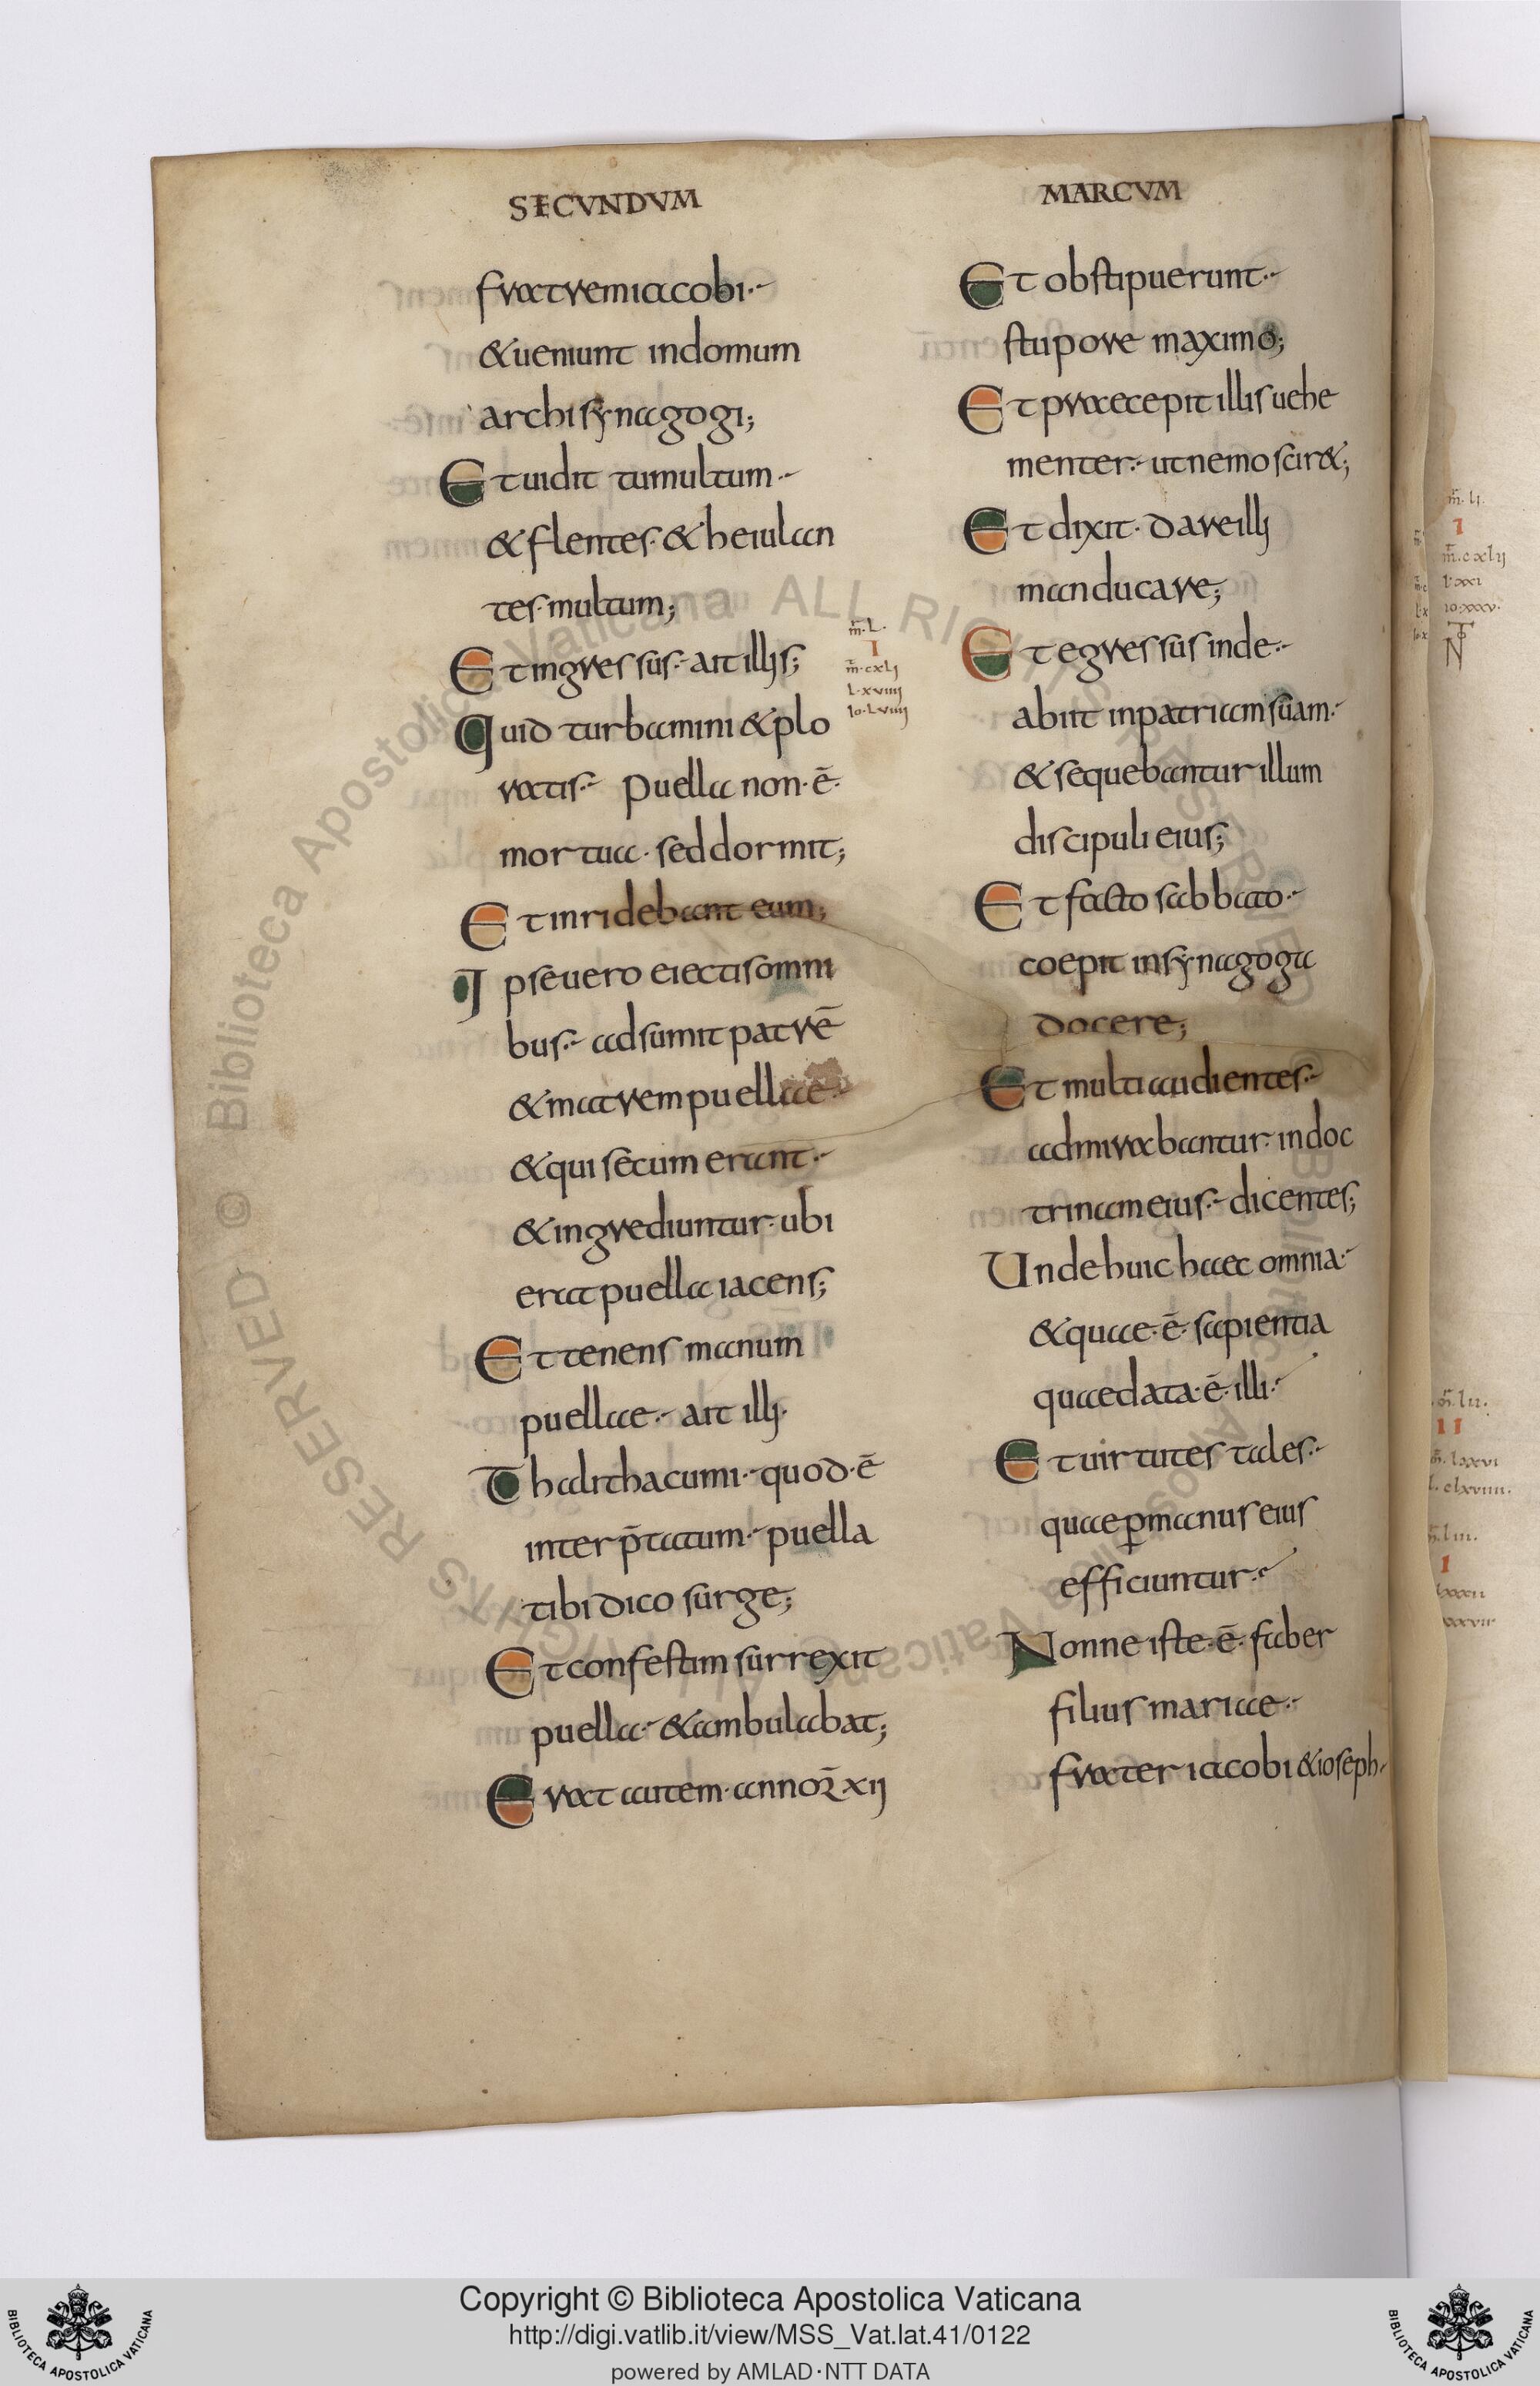 SECVNDVM
fratrem iacobi·
& ueniunt in domum
archisynagogi;
Et uidit tumultum·
& flentes· & heiulan
tes· multum;
Et ingressus· ait illis;
Quid turbamini & plo
ratis· puella non· ē·
mortua· sed dormit;
Et inridebant eum;
Ipse uero eiectis omni
bus· adsumit patrē
& matrem puellae·
& qui secum erant·
& ingrediuntur· ubi
erat puella iacens;
Et tenens manum
puellae· ait illi·
Thalithacumi· quod· ē
interp̄tatum· puella
tibi dico surge;
Et confestim surrexit
puella· & ambulabat;
Erat autem· annoꝝ xij
m̄·L·
I
m̄·cxlj
L·xviiij
Io·Lviiij
MARCVM
Et obstipuerunt·
stupore maximo;
Et praecepit illis uehe
menter· ut nemo scir&;
Et dixit· dare illj
manducare;
Et egressus inde·
abiit in patriam suam·
& sequebantur illum
discipuli eius;
Et facto sabbato·
coepit in synagoga
docere;
Et multi audientes·
admirabantur· in doc
trinam eius· dicentes;
Unde huic haec omnia·
& quae· ē· sapientia
quae data· ē· illi·
Et uirtutes tales·
quae ꝑ manus eius
efficiuntur·
Nonne iste· ē· faber
filius mariae·
frater iacobi & ioseph·
m̄·lj·
I
m̄·cxlij
l·xxi
Io·xxxv·
I I
I
© Biblioteca Apostolica Vaticana ALL RIGHTS RESERVED
Copyright © Biblioteca Apostolica Vaticana
http://digi.vatlib.it/view/MSS_Vat.lat.41/0122
powered by AMLAD·NTT DATA
BIBLIOTECA APOSTOLICA VATICANA
BIBLIOTECA APOSTOLICA VATICANA